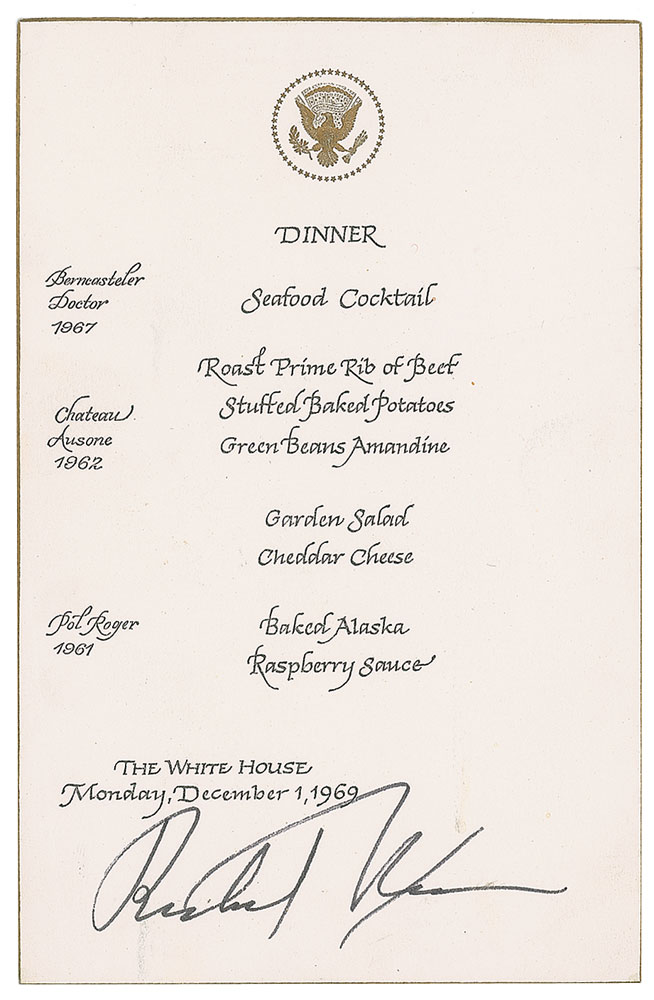 DINNER
Berncasteler
Doctor
1967
Seafood Cocktail
Roast Prime Rib of Beef
Stuffed Baked Potatoes
Green Beans Amandine
Chateau
Ausone
1962
Garden Salad
Cheddar Cheese
Pol Roger
1961
Baked Alaska
Raspberry Sauce
THE WHITE HOUSE
Monday, December 1, 1969
Richard Nixon